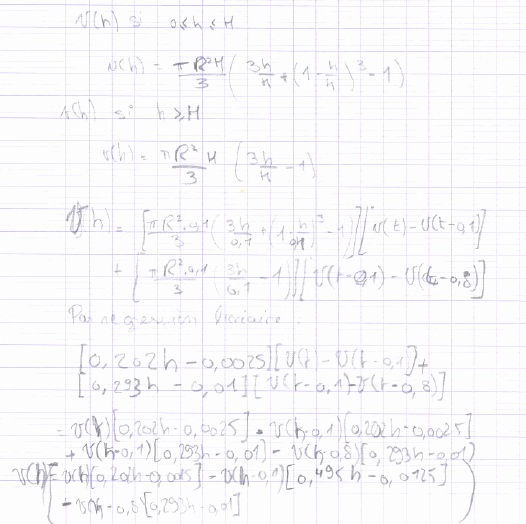 V(h) si 0≤h≤H
v(h) = πR²H/3 (3h/H + (1 - h/H)³ - 1)
v(h) si h≥H
v(h) = πR²H/3 (3h/H - 1)
V(h) = [πR².0,1/3 (3h/0,1 + (1 - h/0,1)³ - 1)][v(t) - v(t-0,1)]
+ [πR².0,1/3 (3h/0,1 - 1)][v(t-0,1) - v(t-0,8)]
Par regression linéaire :
[0,202h - 0,0025][v(t) - v(t-0,1)] +
[0,293h - 0,01][v(t-0,1) - v(t-0,8)]
= v(t)[0,202h-0,0025] - v(t-0,1)[0,202h-0,0025]
+ v(t-0,1)[0,293h-0,01] - v(t-0,8)[0,293h-0,01]
v(h) = v(t)[0,202h-0,0025] - v(t-0,1)[0,495h-0,0125]
- v(t-0,8)[0,293h-0,01]